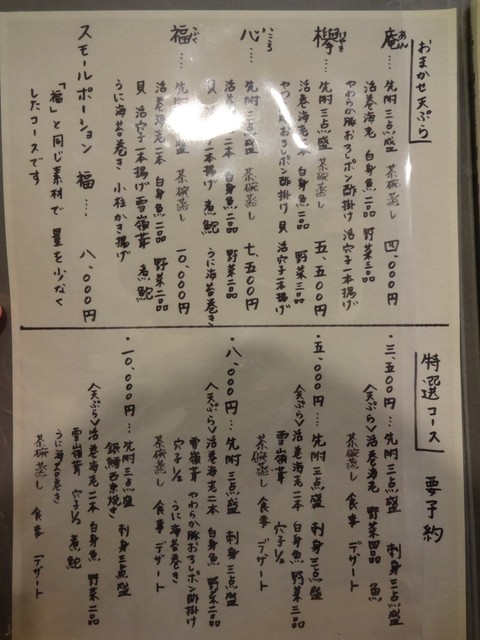 おまかせ天ぷら
庵 あん … 先附三点盛 茶碗蒸し 四、000円
活巻海老 白身魚二品 野菜三品
やわらか豚おろしポン酢掛け 活穴子一本揚げ
欅 … 先附三点盛 茶碗蒸し 五、五00円
活巻海老二本 白身魚二品 野菜三品
やわらか豚おろしポン酢掛け 貝 活穴子一本揚げ
心 こころ … 先附三点盛 茶碗蒸し 七、五00円
活巻海老二本 白身魚二品 野菜二品
貝 活穴子一本揚げ 煮鮑 うに海苔巻き
福 ふく … 先附三点盛 茶碗蒸し 一0、000円
活巻海老二本 白身魚二品 野菜二品
貝 活穴子一本揚げ 雪嶺茸 煮鮑
うに海苔巻き 小柱かき揚げ
スモールポーション 福 … 八、000円
「福」と同じ素材で 量を少なく
したコースです
特選コース 要予約
・三、五00円 … 先附三点盛 刺身三点盛
〈天ぷら〉活巻海老 野菜四品 魚
茶碗蒸し 食事 デザート
・五、000円 … 先附三点盛 刺身三点盛
〈天ぷら〉活巻海老二本 白身魚 野菜三品
雪嶺茸 穴子1/2
茶碗蒸し 食事 デザート
・八、000円 … 先附三点盛 刺身三点盛
〈天ぷら〉活巻海老二本 白身魚 野菜二品
雪嶺茸 やわらか豚おろしポン酢掛け
穴子1/2 うに海苔巻き
茶碗蒸し 食事 デザート
・一0、000円 … 先附三点盛 刺身三点盛
銀鱈西京焼き
〈天ぷら〉活巻海老二本 白身魚 野菜二品
雪嶺茸 穴子1/2 煮鮑
うに海苔巻き
茶碗蒸し 食事 デザート